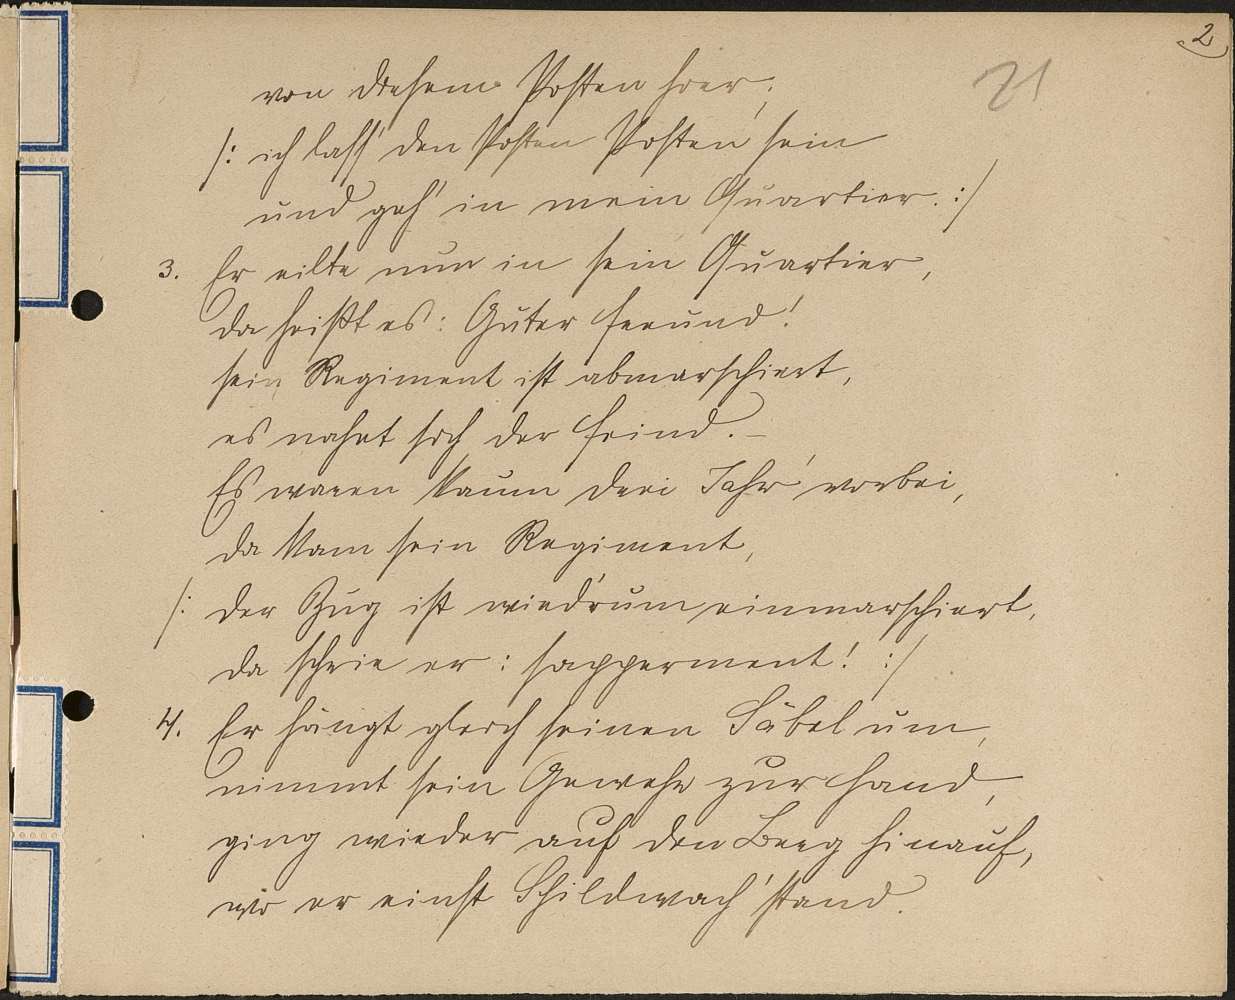 2
21
von diesem Posten hier;
/: ich lass' den Posten Posten sein
und geh' in mein Quartier. :/
3. Er eilte nun in sein Quartier,
da heißt es: Guter Freund!
sein Regiment ist abmarschiert,
es nahet sich der Feind. –
Es waren kaum drei Jahr' vorbei,
da kam sein Regiment,
/: der Zug ist wied'rum einmarschiert,
da schrie er: sapperment! :/
4. Er hängt gleich seinen Säbel um,
nimmt sein Gewehr zur Hand,
ging wieder auf den Berg hinauf,
wo er einst Schildwach' stand.